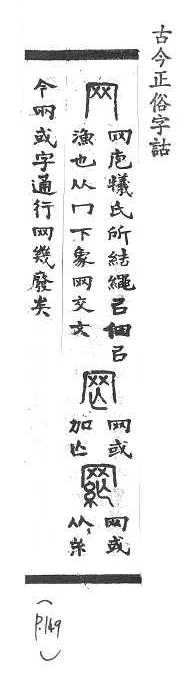 古今正俗字詁
网
网庖犧氏所結繩㠯佃㠯
漁也从冂下象网交文
罔
网或
加亡
網
网或
从糸
今兩或字通行网幾廢矣
(P.149)